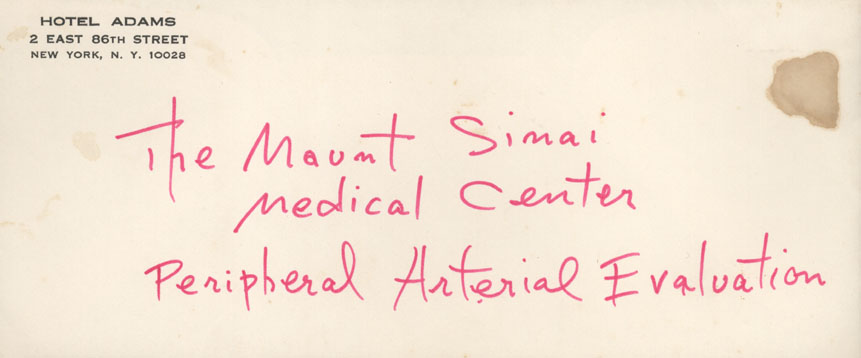 HOTEL ADAMS
2 EAST 86TH STREET
NEW YORK, N. Y. 10028
The Mount Sinai
Medical Center
Peripheral Arterial Evaluation